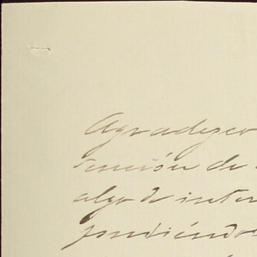 Agradezco
tención de
algo de inter
pondiéndo